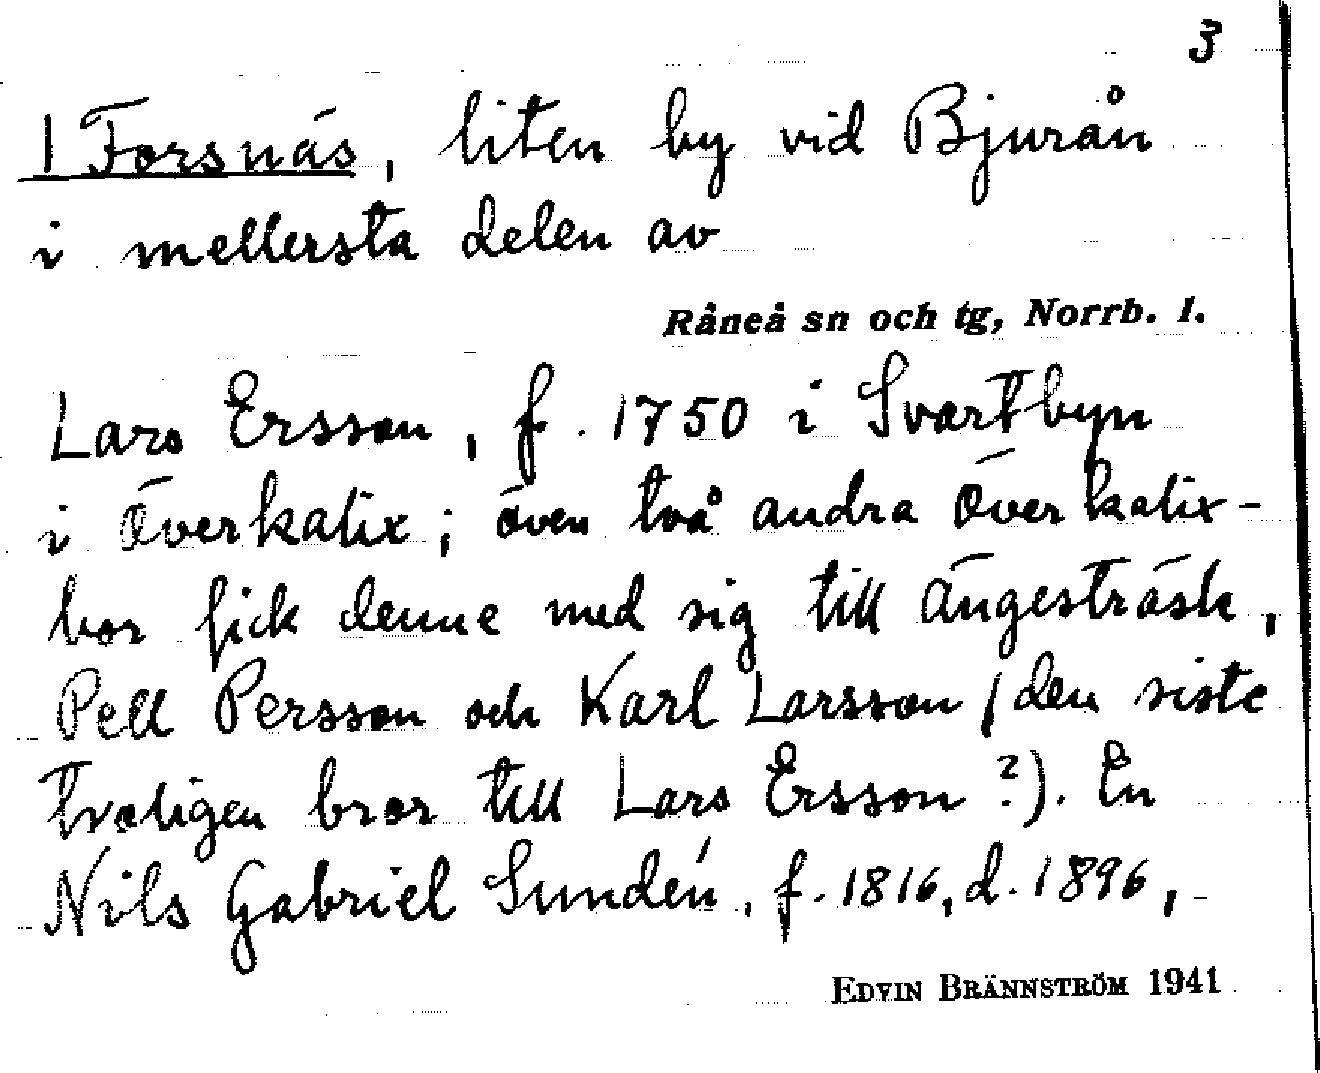 3
| Forsnäs, liten by vid Bjurån
i mellersta delen av
Råneå sn och tg, Norrb. l.
Lars Ersson, f. 1750 i Svartbyn
i Överkalix; även två andra Överkalix-
bor fick denne med sig till Ängesträsk,
Pell Persson och Karl Larsson (den siste
troligen bror till Lars Ersson?). En
Nils Gabriel Sundén, f. 1816, d. 1896,
EDVIN BRÄNNSTRÖM 1941